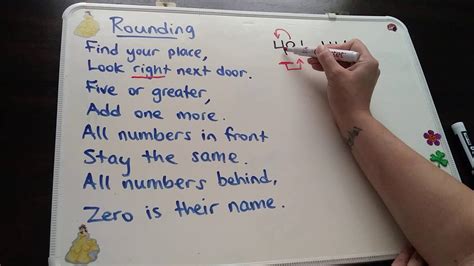 Rounding
Find your place,
Look right next door.
Five or greater,
Add one more.
All numbers in front
Stay the same.
All numbers behind,
Zero is their name.